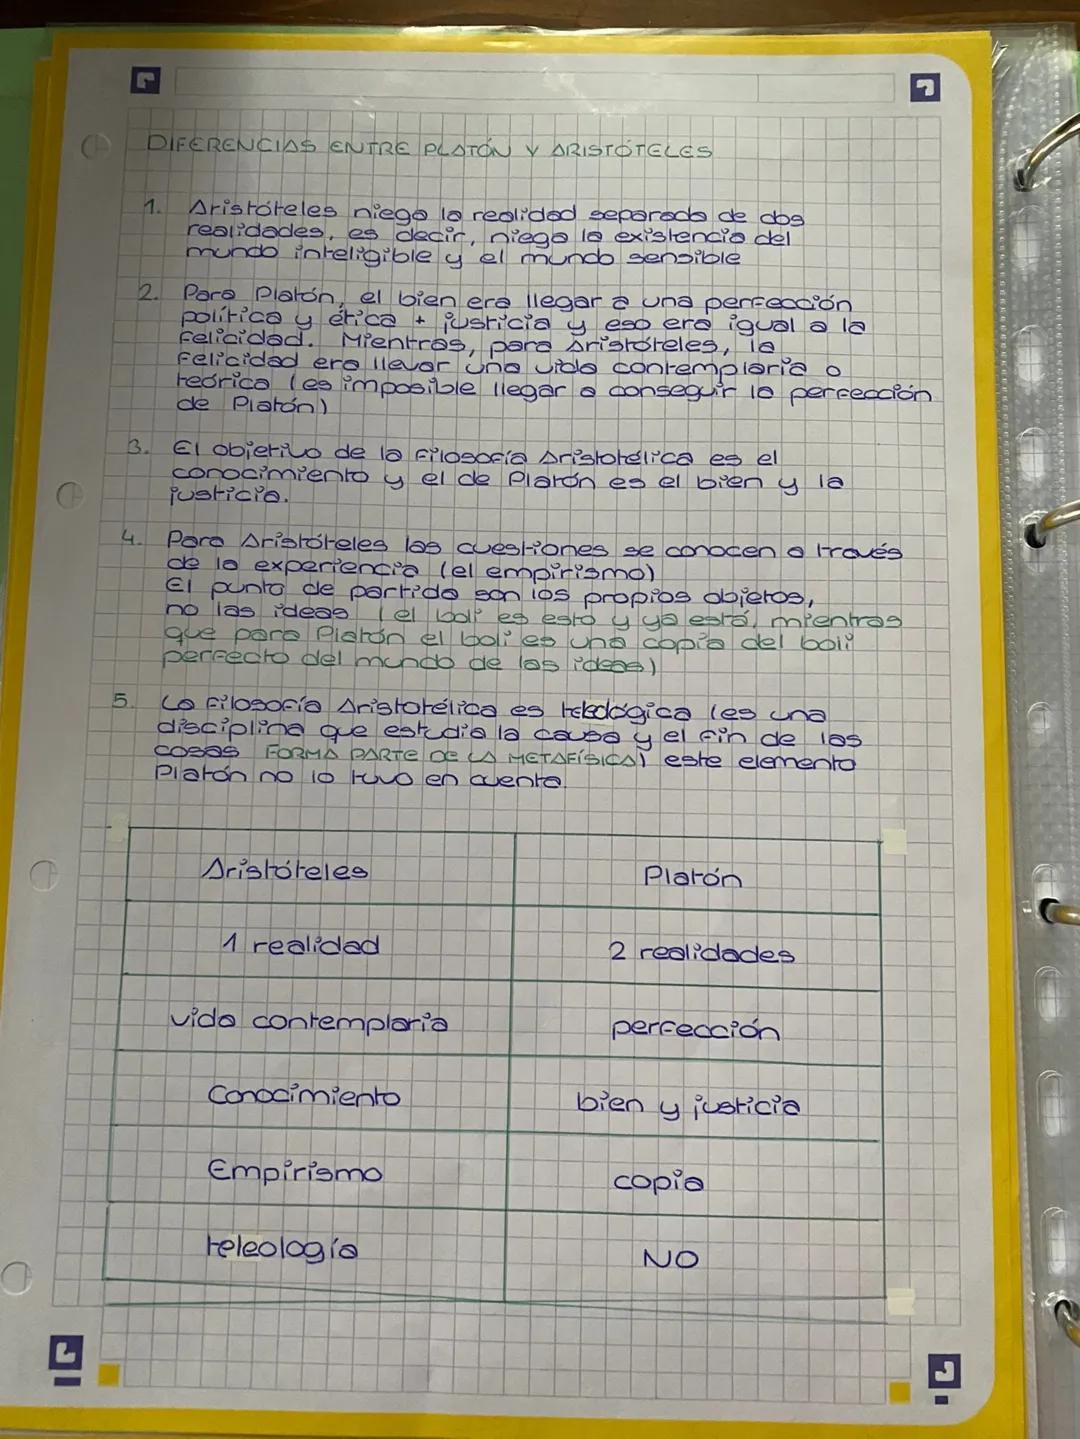 DIFERENCIAS ENTRE PLATÓN Y ARISTÓTELES
1. Aristóteles niega la realidad separada de dos
realidades, es decir, niega la existencia del
mundo inteligible y el mundo sensible
2. Para Platón, el bien era llegar a una perfección
política y ética + justicia y eso era igual a la
felicidad. Mientras, para Aristóteles, la
felicidad era llevar una vida contemplaria o
teórica (es imposible llegar a conseguir la perfección
de Platón)
3. El objetivo de la Filosofía Aristotélica es el
conocimiento y el de Platón es el bien y la
justicia.
4. Para Aristóteles las cuestiones se conocen a través
de la experiencia (el empirismo)
El punto de partida son los propios objetos,
no las ideas (el boli es esto y ya está, mientras
que para Platón el boli es una copia del boli
perfecto del mundo de las ideas)
5. La Filosofía Aristotélica es teleológica (es una
disciplina que estudia la causa y el fin de las
cosas FORMA PARTE DE LA METAFÍSICA) este elemento
Platón no lo tuvo en cuenta.
Aristóteles Platón
1 realidad 2 realidades
vida contemplaria perfección
Conocimiento bien y justicia
Empirismo copia
teleología NO